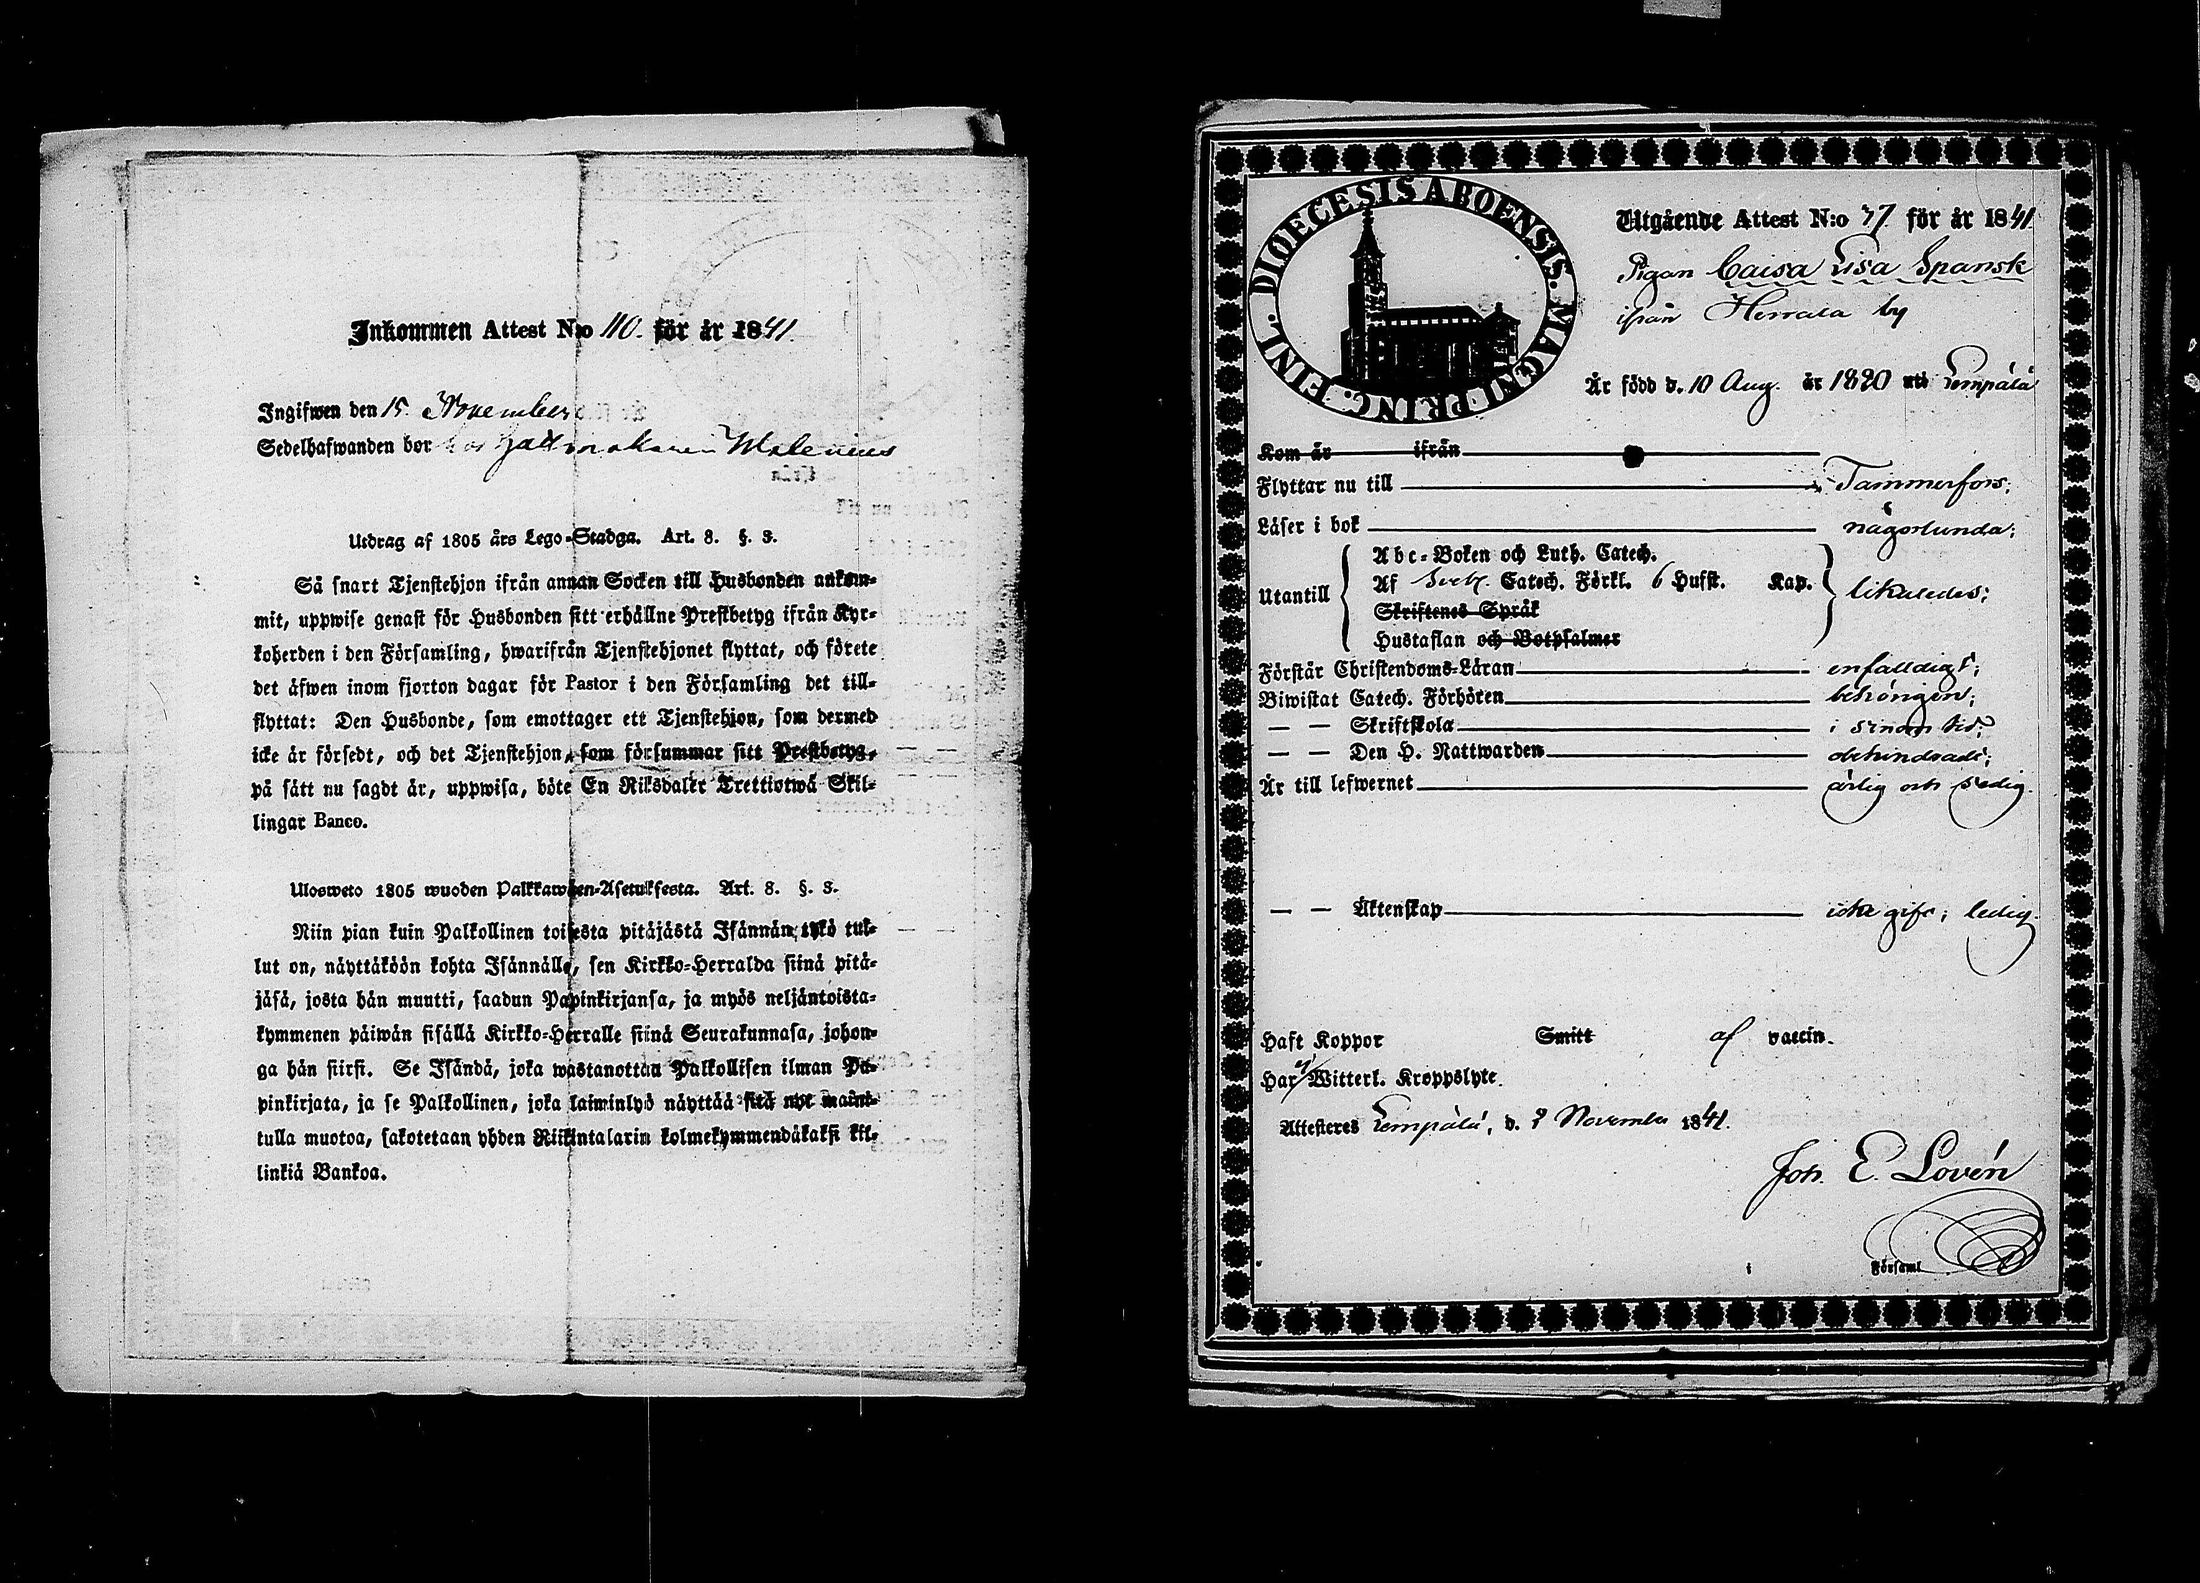 Inkommen Attest N:o 110. för år 1841.
Ingifwen den 15. November
Sedelhafwanden bor hos Hattmakaren Malenius
Utdrag af 1805 års Lego-Stadga. Art. 8. §. 3.
Så snart Tjenstehjon ifrån annan Socken till Husbonden ankom-
mit, uppwise genast för Husbonden sitt erhållne Prestbetyg ifrån Kyr-
koherden i den Församling, hwarifrån Tjenstehjonet flyttat, och förete
det äfwen inom fjorton dagar för Pastor i den Församling det till-
flyttat: Den Husbonde, som emottager ett Tjenstehjon, som dermed
icke är försedt, och det Tjenstehjon, som försummar sitt Prestbetyg,
på sätt nu sagdt är, uppwisa, böte En Riksdaler Trettiotwå Skil-
lingar Banco.
Ulosweto 1805 wuoden Palkkawäen-Asetuksesta. Art. 8. §. 3.
Niin pian kuin Palkollinen toisesta pitäjästä Isännän tykö tul-
lut on, näyttäköön kohta Isännälle, sen Kirkko-Herralda siinä pitä-
jäsä, josta hän muutti, saadun Papinkirjansa, ja myös neljäntoista-
kymmenen päiwän sisällä Kirkko-Herralle siinä Seurakunnasa, johon-
ga hän siirsi. Se Isändä, joka wastanottaa Palkollisen ilman Pa-
pinkirjata, ja se Palkollinen, joka laiminlyö näyttää sitä nyt maini-
tulla muotoa, sakotetaan yhden Riikintalarin kolmekymmendäkaksi kil-
linkiä Bankoa.
DIOECESIS ABOENSIS. MAGNI PRINC. FINL.
Utgående Attest N:o 77 för år 1841.
Pigan Caisa Lisa Spansk
ifrån Herrala by
Är född d. 10 Aug. år 1820 uti Lempälä
Kom år ifrån
Flyttar nu till Tammerfors;
Läser i bok någorlunda;
Utantill
Abc-Boken och Luth. Catech.
Af Sveb. Catech. Förkl. 6 Hufst. Kap. likaledes;
Skriftenes Språk
Hustaflan och Botpsalmer
Förstår Christendoms-Läran enfaldigt;
Biwistat Catech. Förhören behörigen;
— — Skriftskola i sinom tid;
— — Den H. Nattwarden obehindradt;
Är till lefwernet ärlig och sedig.
— — Äktenskap icke gift; ledig.
Haft Koppor Smitt af vaccin.
Har ej Witterl. Kroppslyte.
Attesteres Lempälä, d. 8 November 1841.
Joh. E. Lovén
i Församl